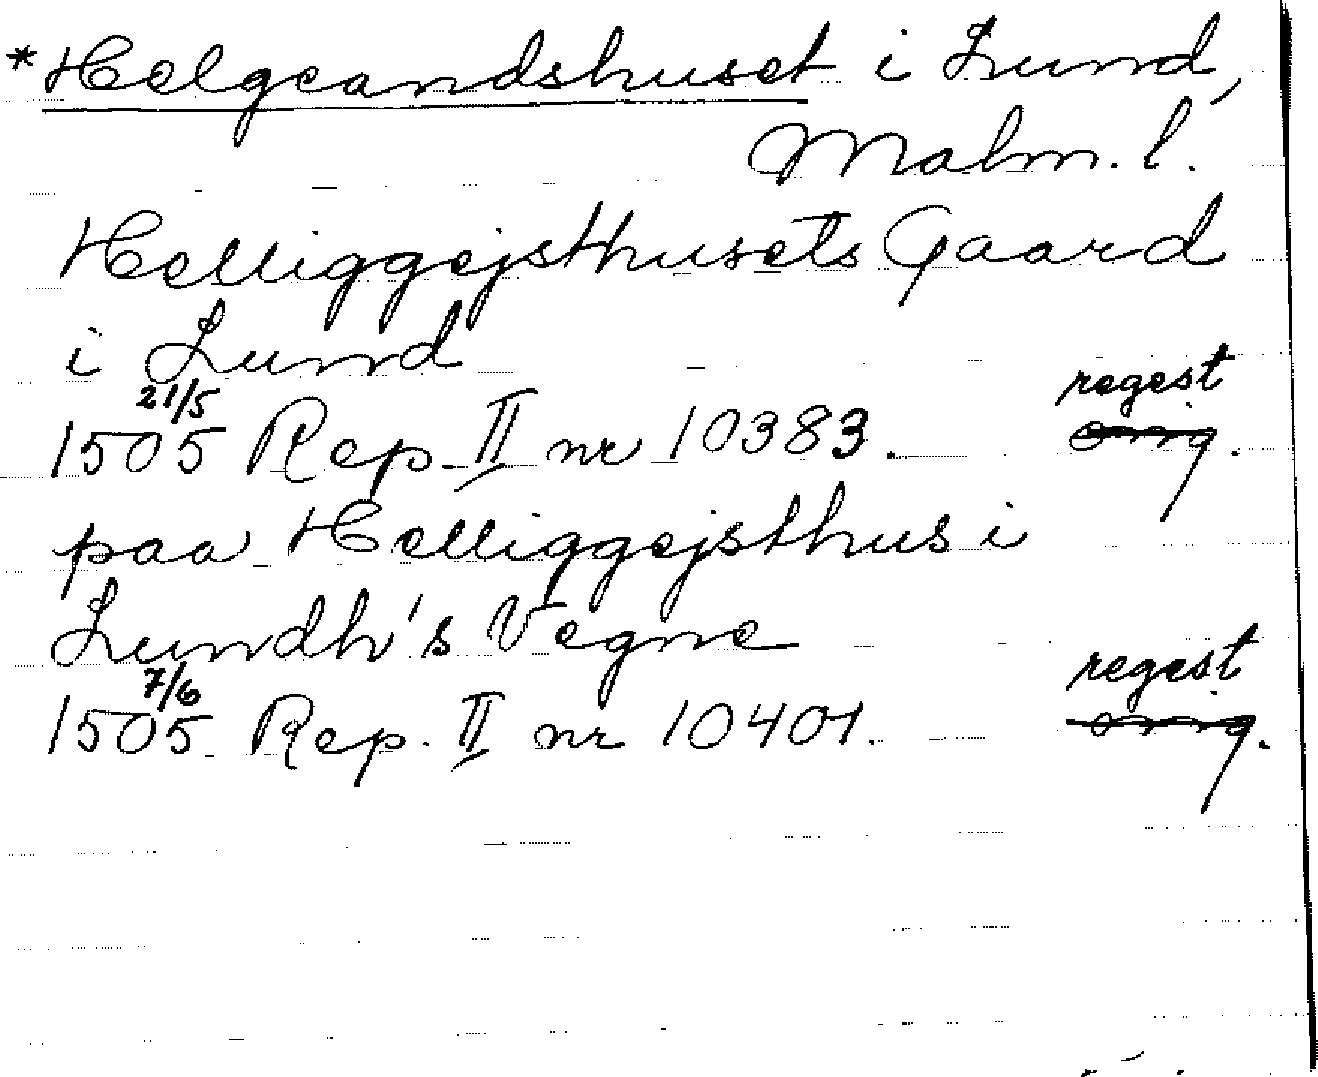 *Helgeandshuset i Lund,
Malm. l.
Helliggejsthusets Gaard
i Lund
21/5 regest
1505 Rep. II nr 10383. orig.
paa Helliggejsthus i
Lundh's Vegne
7/6 regest
1505 Rep. II nr 10401. orig.